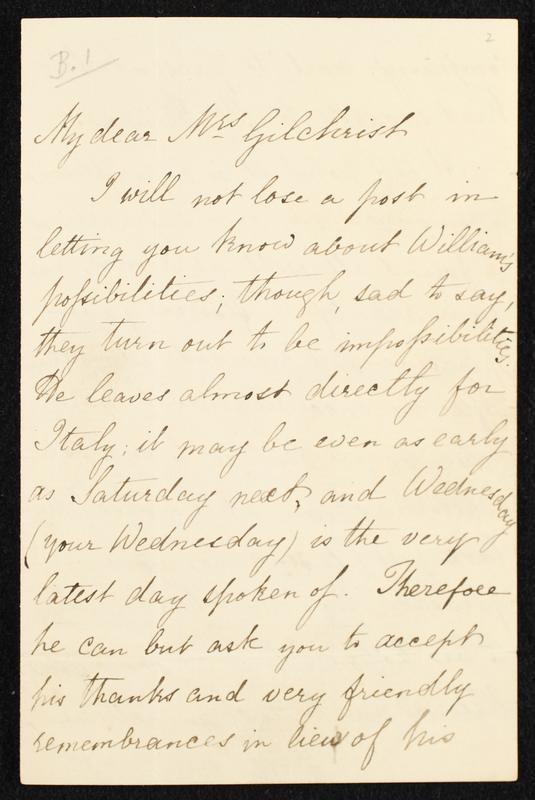 2
B.1
My dear Mrs Gilchrist
I will not lose a post in
letting you know about William's
possibilities; though, sad to say,
they turn out to be impossibilities.
He leaves almost directly for
Italy; it may be even as early
as Saturday next, and Wednesday
(your Wednesday) is the very
latest day spoken of. Therefore
he can but ask you to accept
his thanks and very friendly
remembrances in lieu of his